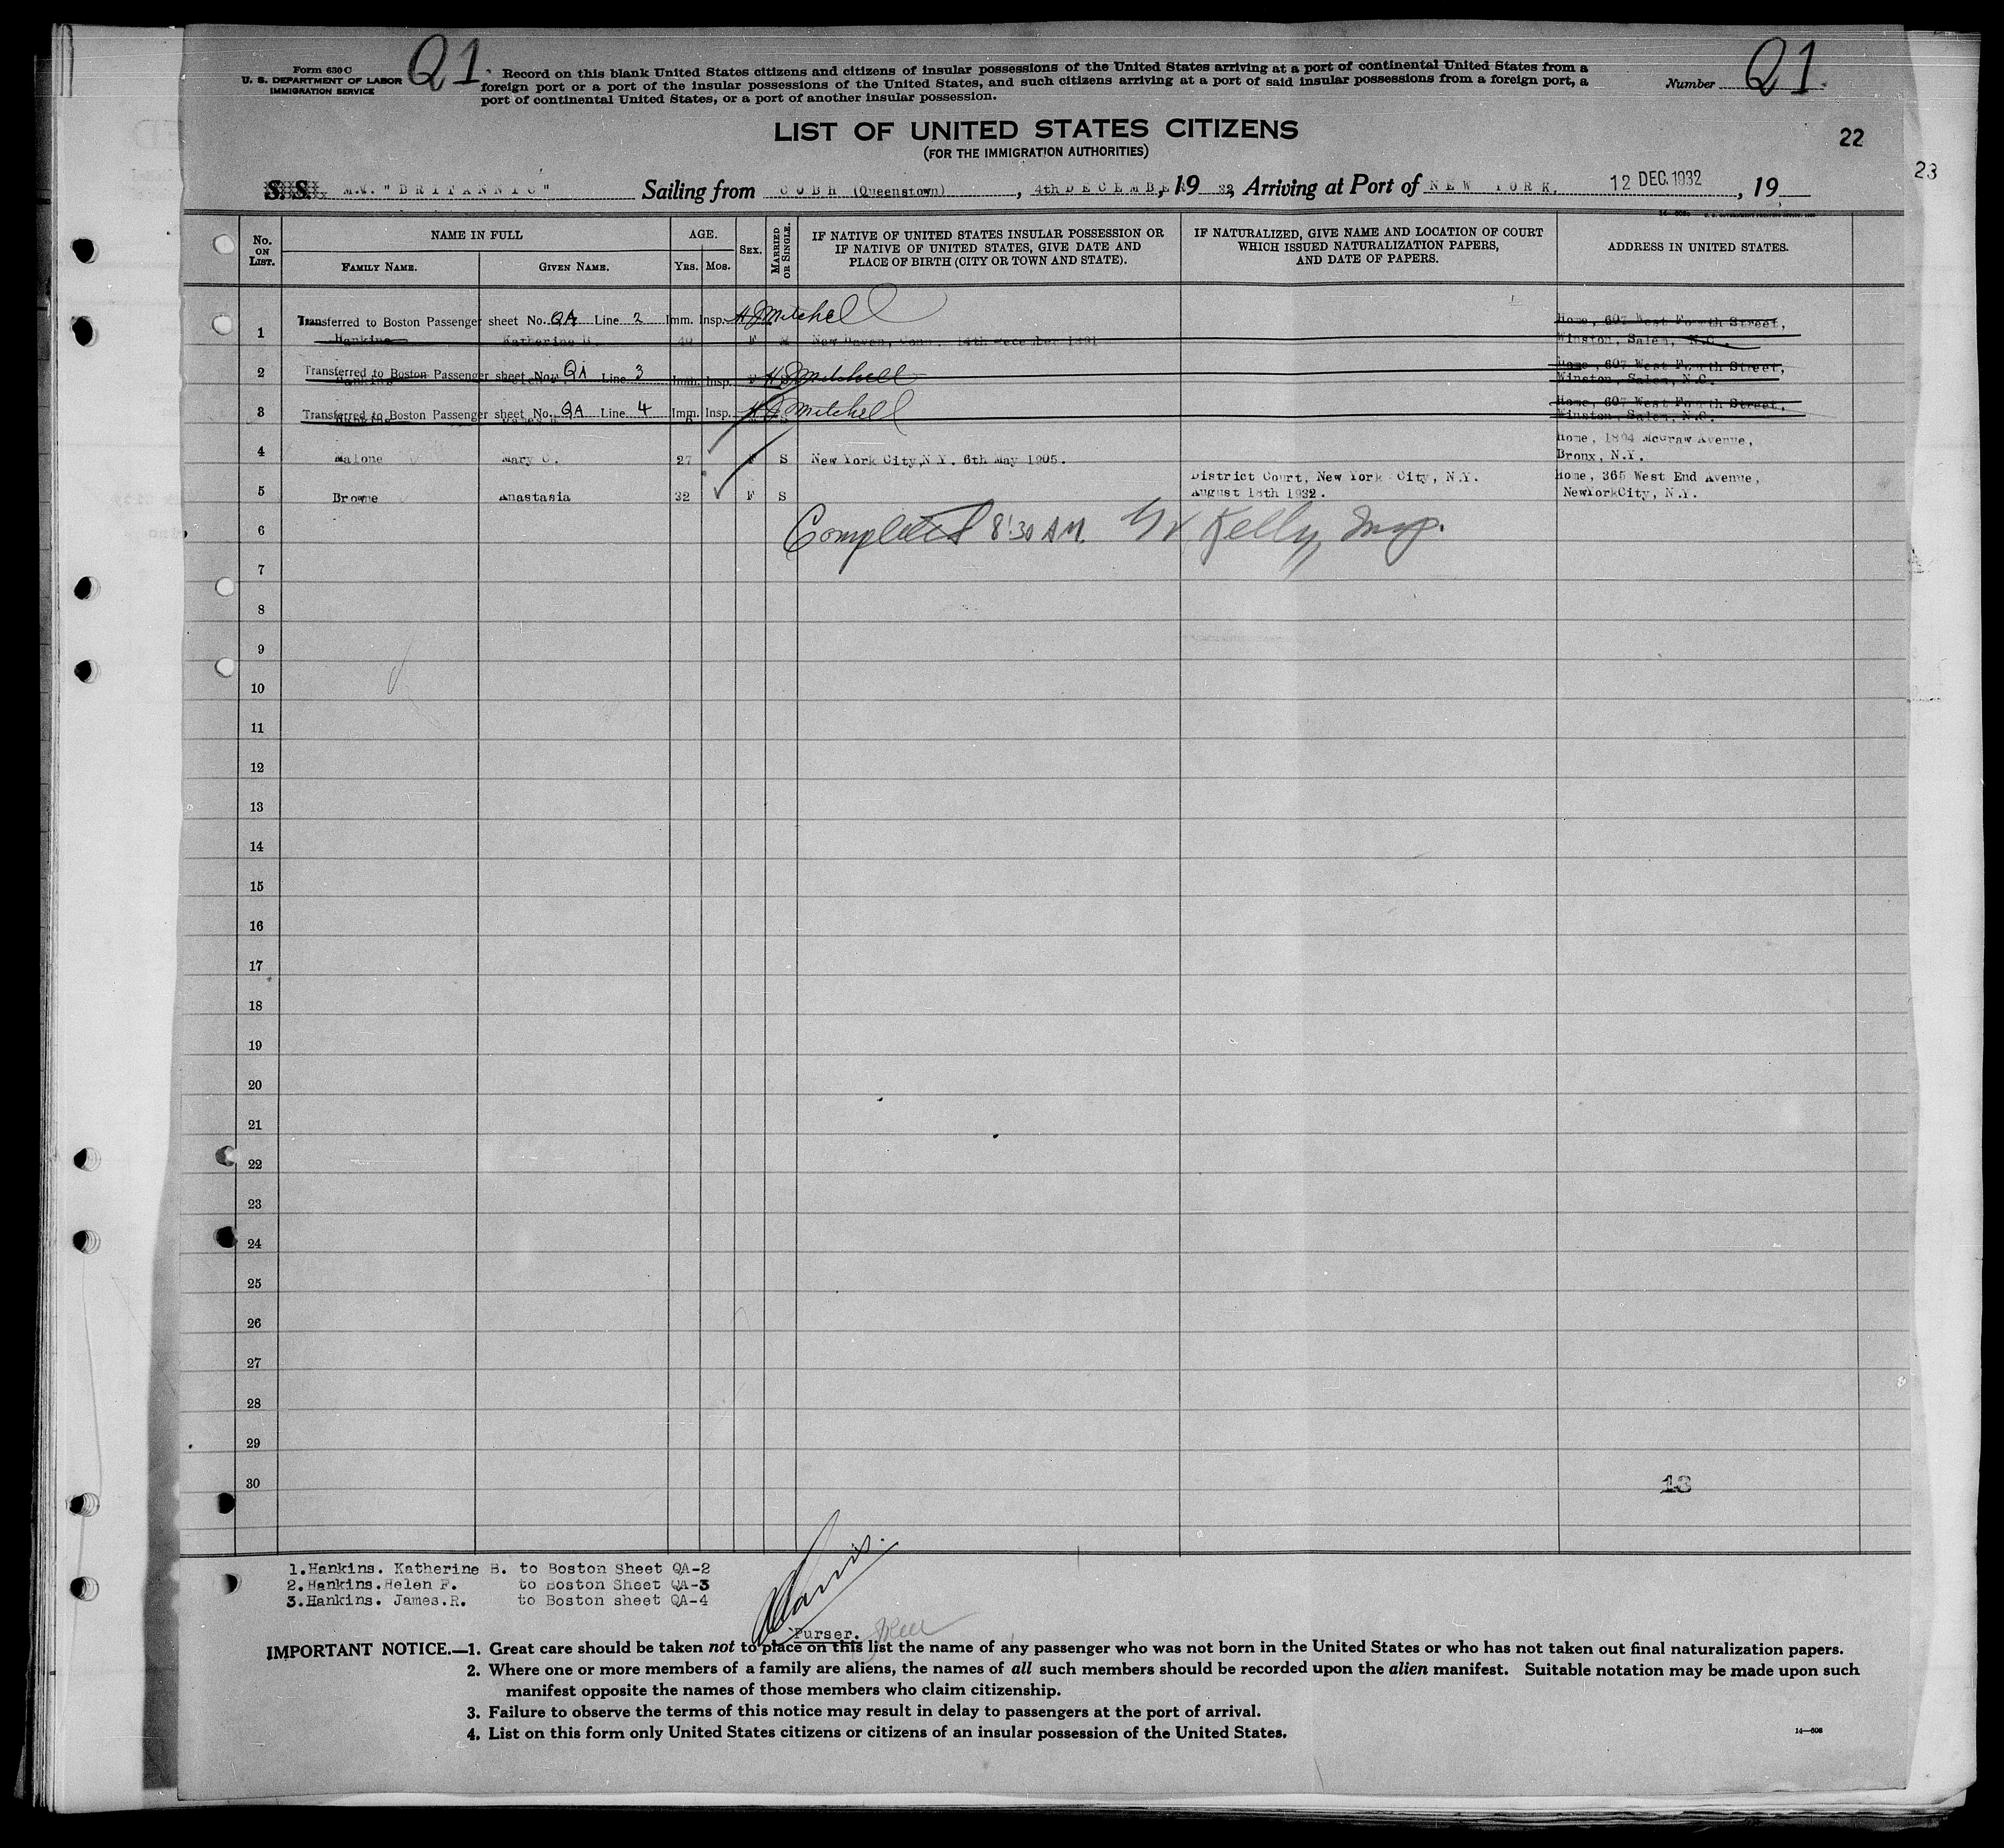 Form 630 C
U. S. DEPARTMENT OF LABOR
IMMIGRATION SERVICE
Q1.
Record on this blank United States citizens and citizens of insular possessions of the United States arriving at a port of continental United States from a
foreign port or a port of the insular possessions of the United States, and such citizens arriving at a port of said insular possessions from a foreign port, a
port of continental United States, or a port of another insular possession.
Number Q1.
LIST OF UNITED STATES CITIZENS
(FOR THE IMMIGRATION AUTHORITIES)
22
23
S. S. M.V. "BRITANNIC" Sailing from COBH (Queenstown), 4th DECEMBER, 19 32, Arriving at Port of NEW YORK. 12 DEC. 1932, 19
No. ON LIST.
NAME IN FULL
FAMILY NAME.
GIVEN NAME.
AGE.
YRS. MOS.
SEX.
MARRIED OR SINGLE.
IF NATIVE OF UNITED STATES INSULAR POSSESSION OR
IF NATIVE OF UNITED STATES, GIVE DATE AND
PLACE OF BIRTH (CITY OR TOWN AND STATE).
IF NATURALIZED, GIVE NAME AND LOCATION OF COURT
WHICH ISSUED NATURALIZATION PAPERS,
AND DATE OF PAPERS.
ADDRESS IN UNITED STATES.
Transferred to Boston Passenger sheet No. QA Line 2 Imm. Insp. H J Mitchell Home, 607 West Fourth Street,
1 Hankins Katherine B. 40 F M New Haven, Conn. 14th December 1891 Winston, Salem, N.C.
2 Transferred to Boston Passenger sheet No. QA Line 3 Imm. Insp. H J Mitchell Home, 607 West Fourth Street,
Winston, Salem, N.C.
3 Transferred to Boston Passenger sheet No. QA Line 4 Imm. Insp. H J Mitchell Home, 607 West Fourth Street,
Winston, Salem, N.C.
Home, 1804 McGraw Avenue,
4 Malone Mary C. 27 F S New York City, N.Y. 6th May 1905. Bronx, N.Y.
District Court, New York City, N.Y. Home, 365 West End Avenue,
5 Browne Anastasia 32 F S August 18th 1932. NewYorkCity, N.Y.
6 Completed 8:30 AM. Kelly, Insp.
7
8
9
10
11
12
13
14
15
16
17
18
19
20
21
22
23
24
25
26
27
28
29
30
13
1.Hankins. Katherine B. to Boston Sheet QA-2
2.Hankins.Helen F. to Boston Sheet QA-3
3.Hankins. James.R. to Boston sheet QA-4
Purser.
IMPORTANT NOTICE.—1. Great care should be taken not to place on this list the name of any passenger who was not born in the United States or who has not taken out final naturalization papers.
2. Where one or more members of a family are aliens, the names of all such members should be recorded upon the alien manifest. Suitable notation may be made upon such
manifest opposite the names of those members who claim citizenship.
3. Failure to observe the terms of this notice may result in delay to passengers at the port of arrival.
4. List on this form only United States citizens or citizens of an insular possession of the United States.
14—608